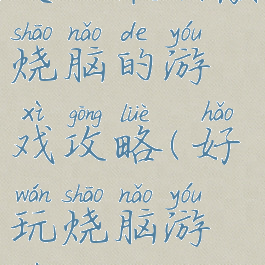 shāo nǎo de yóu
烧脑的游
xì gōng lüè hǎo
戏攻略(好
wán shāo nǎo yóu
玩烧脑游